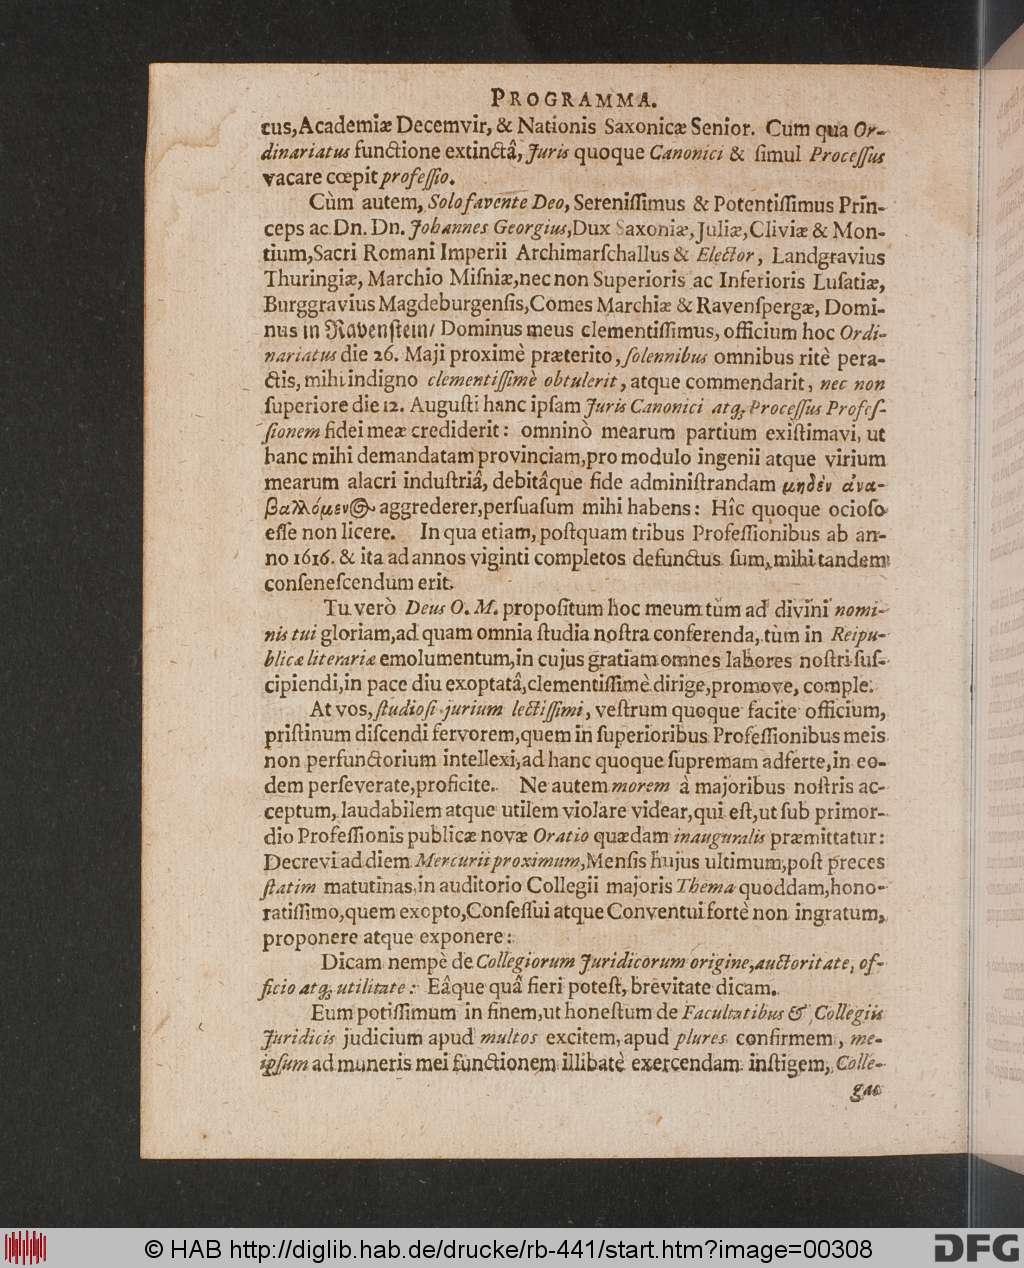 PROGRAMMA.
cus, Academiæ Decemvir, & Nationis Saxonicæ Senior. Cum qua Or-
dinariatus functione extinctâ, Juris quoque Canonici & ſimul Proceſſus
vacare cœpit profeſſio.
Cùm autem, Solo favente Deo, Sereniſſimus & Potentiſſimus Prin-
ceps ac Dn. Dn. Johannes Georgius, Dux Saxoniæ, Juliæ, Cliviæ & Mon-
tium, Sacri Romani Imperii Archimarſchallus & Elector, Landgravius
Thuringiæ, Marchio Miſniæ, nec non Superioris ac Inferioris Luſatiæ,
Burggravius Magdeburgenſis, Comes Marchiæ & Ravenſpergæ, Domi-
nus in Ravenſtein/ Dominus meus clementiſſimus, officium hoc Ordi-
nariatus die 26. Maji proximè præterito, ſolennibus omnibus ritè pera-
ctis, mihi indigno clementiſſimè obtulerit, atque commendarit, nec non
ſuperiore die 12. Auguſti hanc ipſam Juris Canonici atq; Proceſſus Profeſ-
ſionem fidei meæ crediderit: omninò mearum partium exiſtimavi, ut
hanc mihi demandatam provinciam, pro modulo ingenii atque virium
mearum alacri induſtriâ, debitâque fide adminiſtrandam μηδὲν ἀνα-
βαλλόμενος aggrederer, perſuaſum mihi habens: Hîc quoque ocioſo
eſſe non licere. In qua etiam, poſtquam tribus Profeſſionibus ab an-
no 1616. & ita ad annos viginti completos defunctus ſum, mihi tandem
conſeneſcendum erit.
Tu verò Deus O. M. propoſitum hoc meum tùm ad divini nomi-
nis tui gloriam, ad quam omnia ſtudia noſtra conferenda, tùm in Reipu-
blicæ literariæ emolumentum, in cujus gratiam omnes labores noſtri ſuſ-
cipiendi, in pace diu exoptatâ, clementiſſimè dirige, promove, comple.
At vos, ſtudioſi jurium lectiſſimi, veſtrum quoque facite officium,
priſtinum diſcendi fervorem, quem in ſuperioribus Profeſſionibus meis
non perfunctorium intellexi, ad hanc quoque ſupremam adferte, in eo-
dem perſeverate, proficite. Ne autem morem à majoribus noſtris ac-
ceptum, laudabilem atque utilem violare videar, qui eſt, ut ſub primor-
dio Profeſſionis publicæ novæ Oratio quædam inauguralis præmittatur:
Decrevi ad diem Mercurii proximum, Menſis hujus ultimum, poſt preces
ſtatim matutinas, in auditorio Collegii majoris Thema quoddam, hono-
ratiſſimo, quem exopto, Conſeſſui atque Conventui fortè non ingratum,
proponere atque exponere:
Dicam nempè de Collegiorum Juridicorum origine, auctoritate, of-
ficio atq; utilitate: Eâque quâ fieri poteſt, brevitate dicam.
Eum potiſſimum in finem, ut honeſtum de Facultatibus & Collegiis
Juridicis judicium apud multos excitem, apud plures confirmem, me-
ipſum ad muneris mei functionem illibatè exercendam inſtigem, Colle-
gas
© HAB http://diglib.hab.de/drucke/rb-441/start.htm?image=00308
DFG